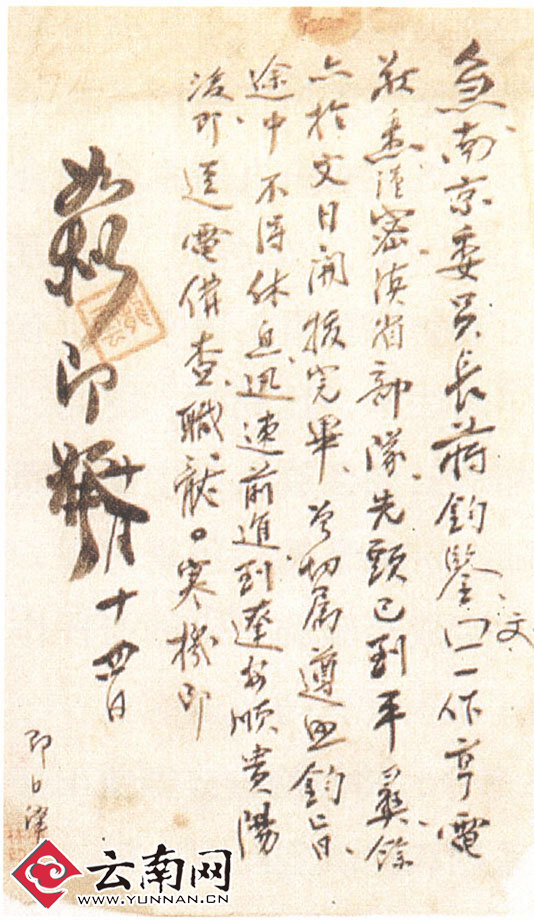 急南京委员长蒋钧鉴口一作亨电
文
敬悉谨密滇省部队先头已到平彝余
亦于文日开拔完毕曾切属遵照钧旨
途中不得休息迅速前进到达安顺贵阳
后即迳电备查职龙〇寒机印
即
十一月十四日
即日译
云南网
WWW.YUNNAN.CN